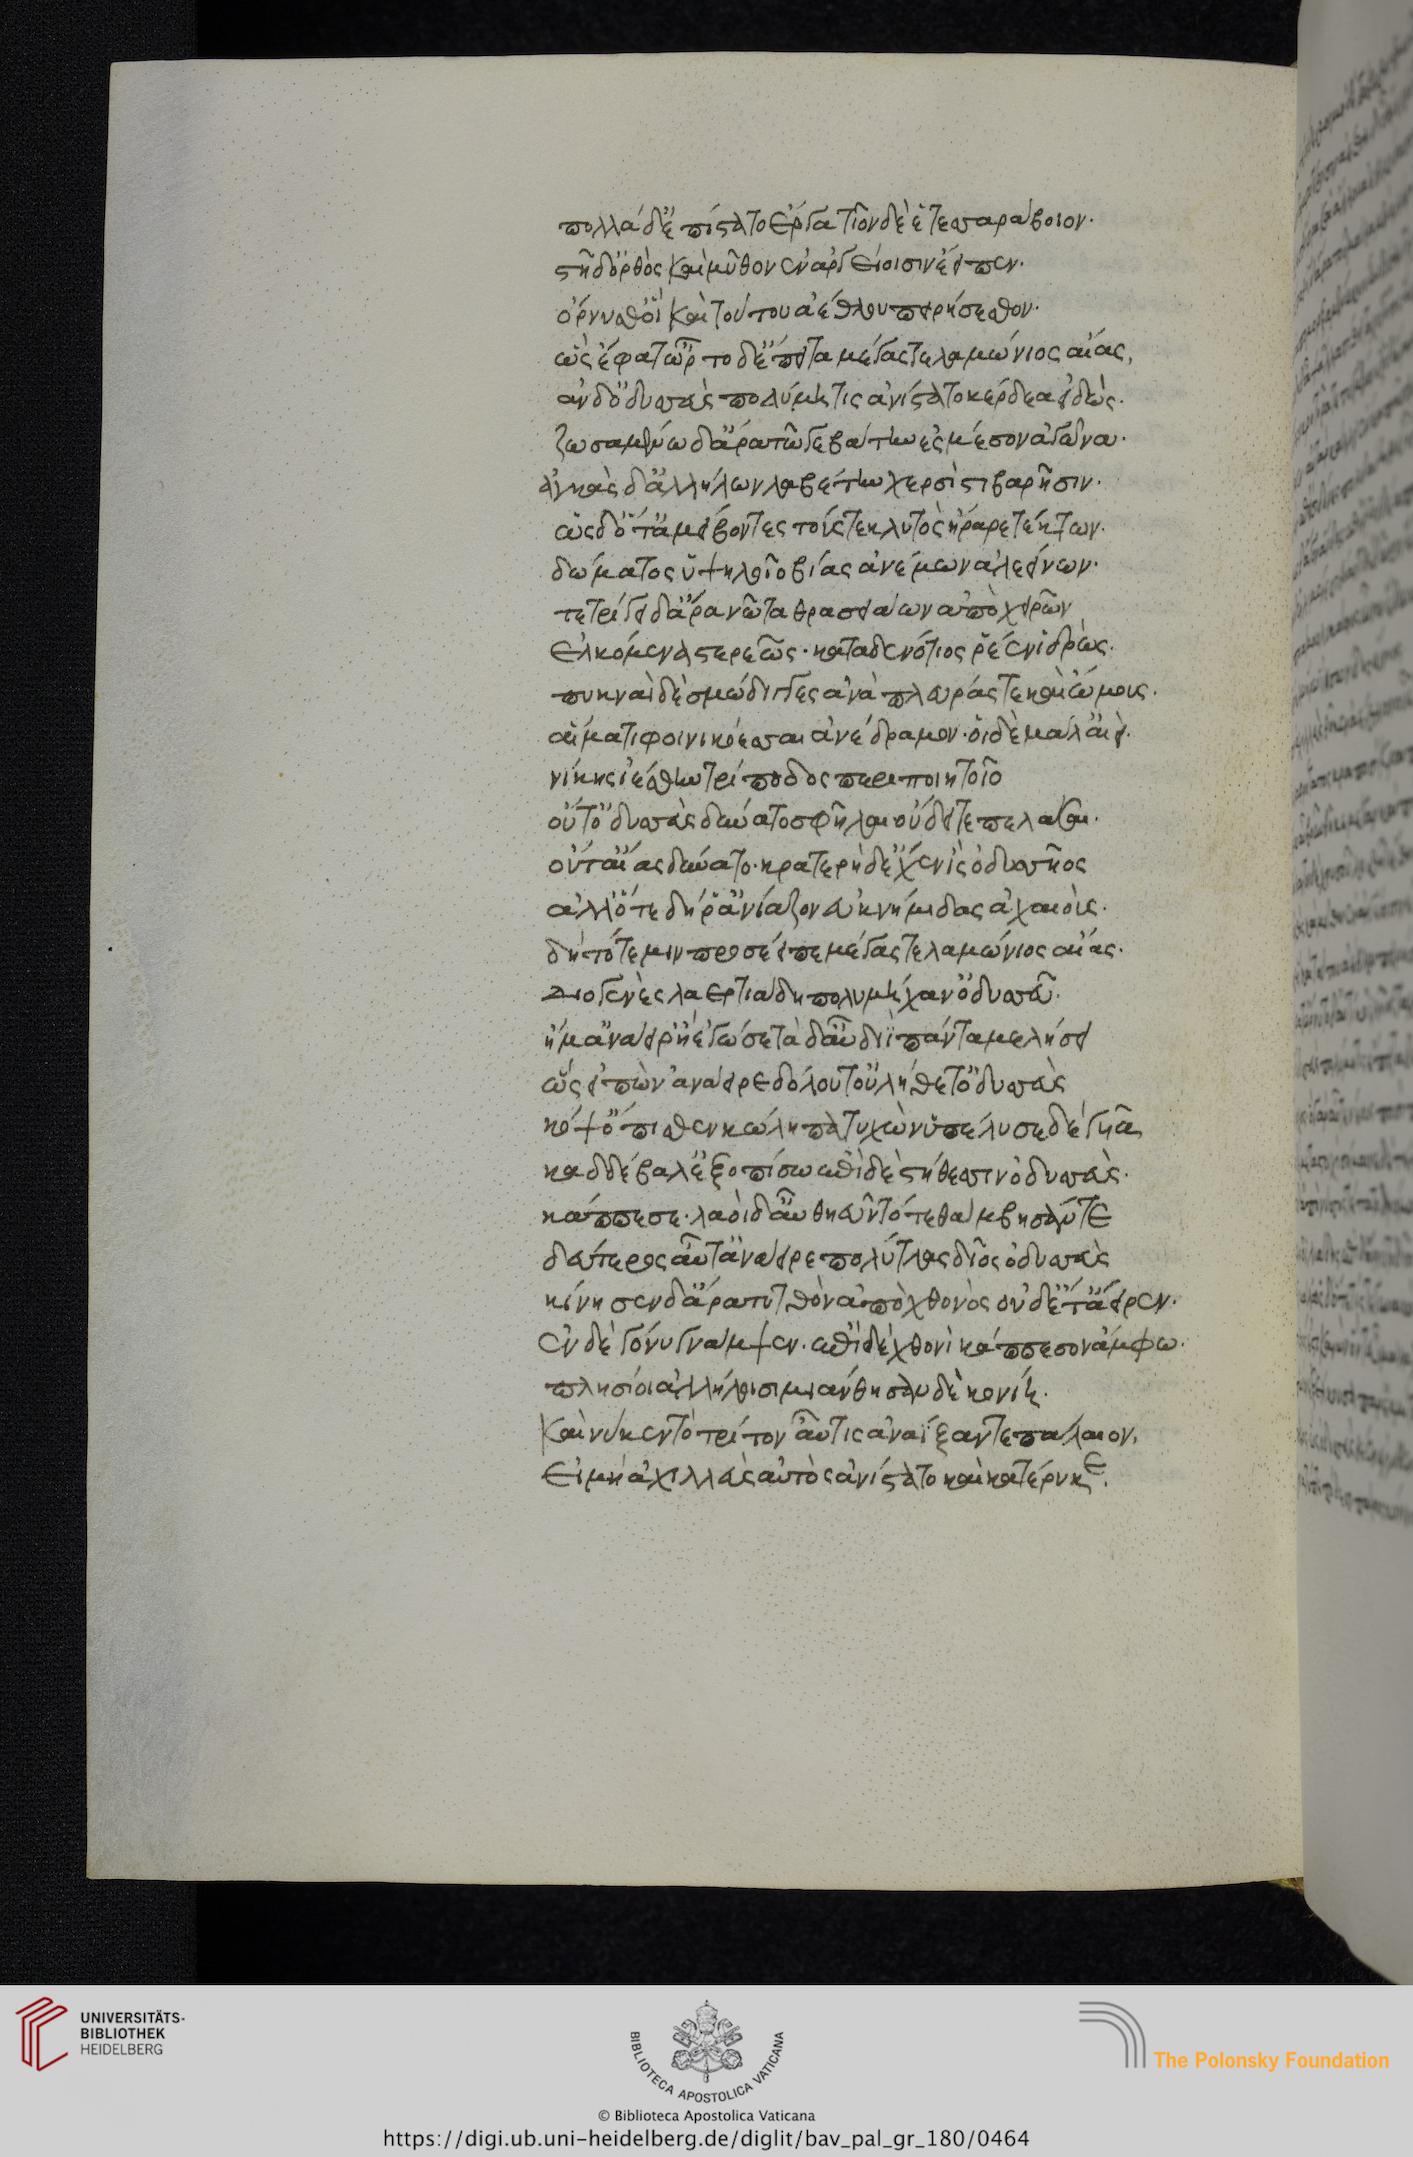 πολλὰ δ' ἐπίστατο ἔργα τῖον δὲ ἑ τεσσαράβοιον·
στῆ δ' ὀρθὸς καὶ μῦθον ἐν ἀργείοισιν ἔειπεν·
ὄρνυσθ' οἳ καὶ τούτου ἀέθλου πειρήσεσθον·
ὣς ἔφατ' ὦρτο δ' ἔπειτα μέγας τελαμώνιος αἴας,
ἀν δ' ὀδυσσεὺς πολύμητις ἀνίστατο κέρδεα εἰδώς·
ζωσαμένω δ' ἄρα τῶγε βάτην ἐς μέσον ἀγῶνα·
ἀγκὰς δ' ἀλλήλων λαβέτην χερσὶ στιβαρῆσιν·
ὡς δ' ὅτ' ἀμείβοντες τούς τε κλυτὸς ἤραρε τέκτων·
δώματος ὑψηλοῖο βίας ἀνέμων ἀλεείνων·
τετρίγει δ' ἄρα νῶτα θρασειάων ἀπὸ χειρῶν
ἑλκόμενα στερεῶς· κατα δε νότιος ῥέεν ἱδρώς·
πυκναὶ δὲ σμώδιγγες ἀνὰ πλευράς τε καὶ ὤμους·
αἵματι φοινικόεσσαι ἀνέδραμον· οἱ δὲ μάλ' αἰεί·
νίκης ἱέσθην τρίποδος περι ποιητοῖο
οὔτ' ὀδυσσεὺς δύνατο σφῆλαι οὔδει τε πελάσσαι·
οὔτ' αἴας δύνατο· κρατερὴ δ' ἔχεν ἲς ὀδυσσῆος
ἀλλ' ὅτε δή ῥ' ἀνίαζον ἐυκνήμιδας ἀχαιούς·
δὴ τότε μιν προσέειπε μέγας τελαμώνιος αἴας·
διογενὲς λαερτιάδη πολυμήχαν' ὀδυσσεῦ·
ἤ μ' ἀνάειρ' ἢ ἐγώ σε τὰ δ' αὖ διῒ πάντα μελήσει
ὣς εἰπὼν ἀνάειρε δόλου τ' οὐ λήθετ' ὀδυσσεὺς
κόψ' ὄπισθεν κώληπα τυχὼν ὑπέλυσε δὲ γυῖα
καδδέβαλ' ἐξοπίσω ἐπὶ δὲ στήθεσσιν ὀδυσσεὺς·
κάππεσε· λαοὶ δ' αὖ θηεῦντό τε θάμβησάν τε
δεύτερος αὖτ' ἀνάειρε πολύτλας δῖος ὀδυσσεὺς
κίνησεν δ' ἄρα τυτθὸν ἀπὸ χθονὸς οὐδέ τ' ἄειρεν·
ἐν δὲ γόνυ γνάμψεν· ἐπὶ δὲ χθονὶ κάππεσον ἄμφω·
πλησίοι ἀλλήλοισι μιάνθησαν δὲ κονίη·
καὶ νύ κεν τὸ τρίτον αὖτις ἀναίξαντε πάλαιον,
εἰ μὴ ἀχιλλεὺς αὐτὸς ἀνίστατο καὶ κατέρυκε·
UNIVERSITÄTS-
BIBLIOTHEK
HEIDELBERG
BIBLIOTECA APOSTOLICA VATICANA
The Polonsky Foundation
© Biblioteca Apostolica Vaticana
https://digi.ub.uni-heidelberg.de/diglit/bav_pal_gr_180/0464